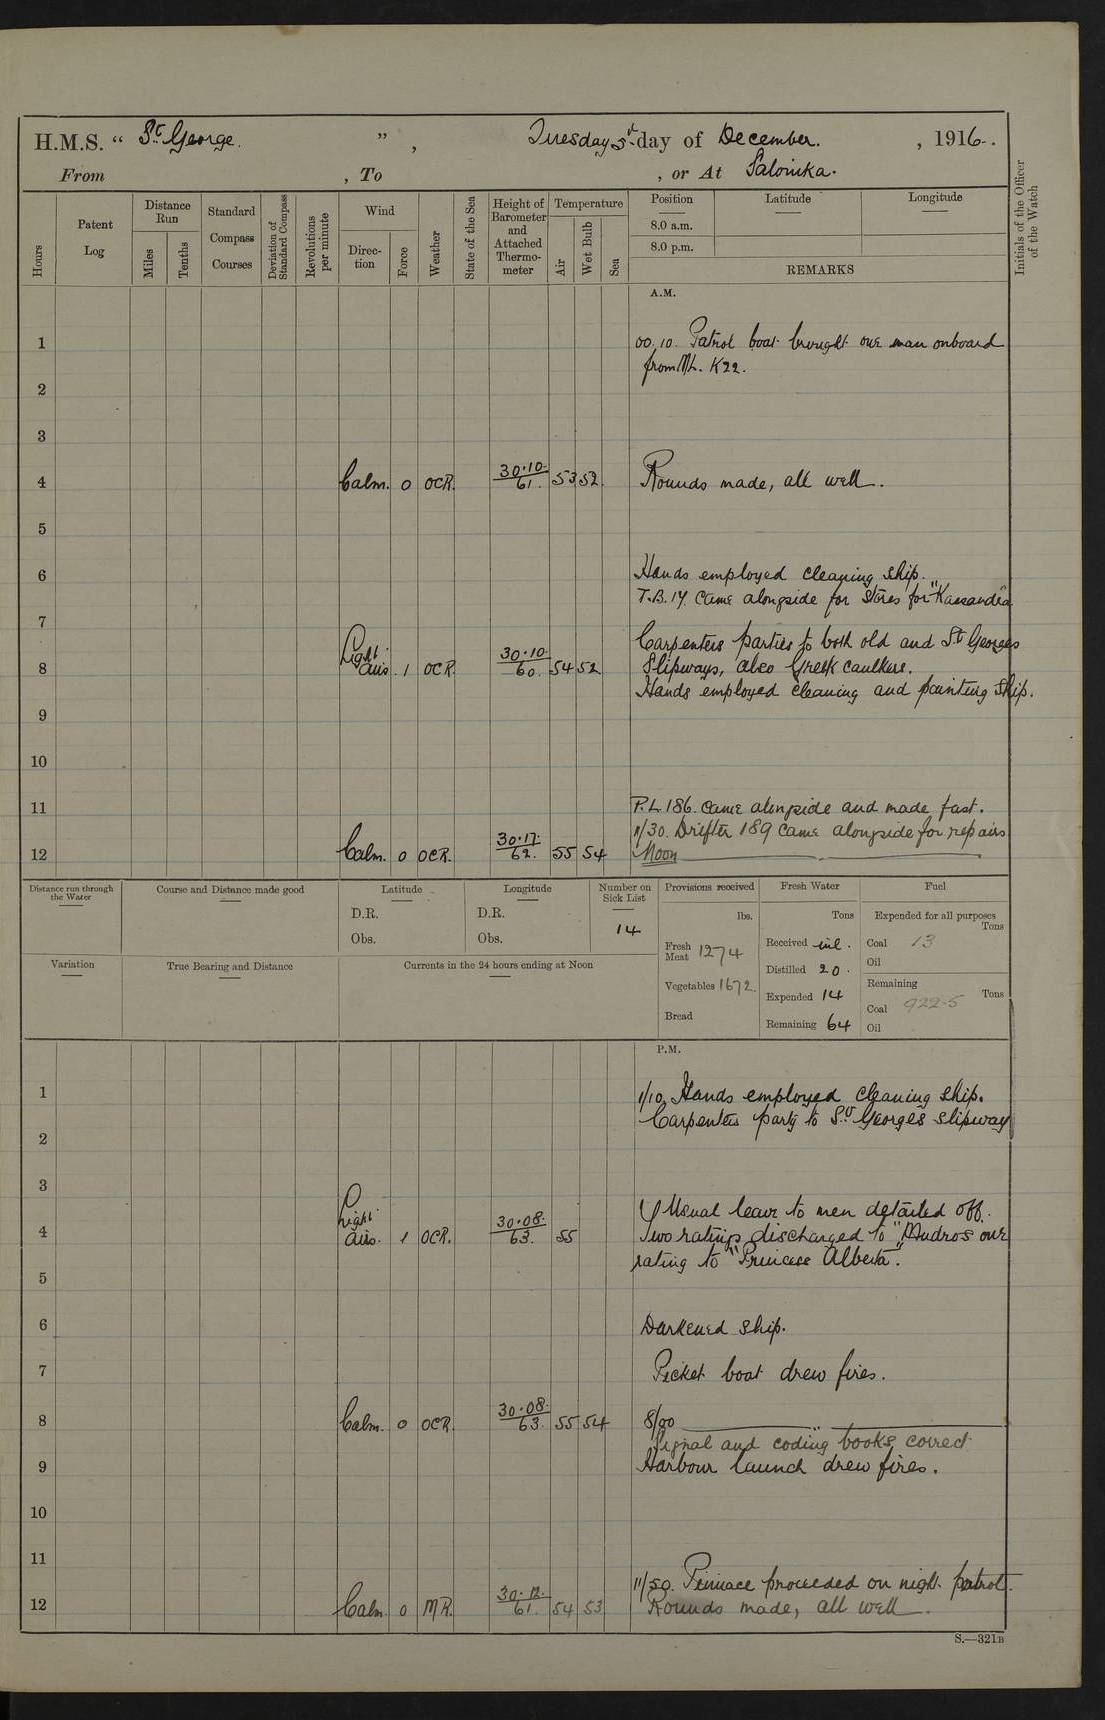 H.M.S. “ St George. ” , Tuesday 5th day of December. , 1916.
From , To , or At Salonika.
Hours
Patent Log
Distance Run
Miles
Tenths
Standard Compass Courses
Deviation of Standard Compass
Revolutions per minute
Wind
Direction
Force
Weather
State of the Sea
Height of Barometer and Attached Thermometer
Temperature
Air
Wet Bulb
Sea
Position Latitude Longitude
8.0 a.m.
8.0 p.m.
REMARKS
Initials of the Officer of the Watch
A.M.
1 00.10. Patrol boat brought one man onboard
from ML. K22.
2
3
4 Calm. 0 OCR. 30.10./61. 53 52. Rounds made, all well.
5
6 Hands employed cleaning ship.
T.B. 17. Came alongside for Stores for "Kassandra"
7
Carpenters parties to both old and St Georges
8 Light airs. 1 OCR. 30.10./60. 54 52 Slipways, also Greek caulkers.
Hands employed cleaning and painting ship.
9
10
11 P.L. 186. Came alongside and made fast.
11/30. Drifter 189 came alongside for repairs
12 Calm. 0 OCR. 30.17./62. 55 54 Noon
Distance run through the Water
Course and Distance made good
Latitude
D.R.
Obs.
Longitude
D.R.
Obs.
Number on Sick List
14
Provisions received
lbs.
Fresh Meat 1274
Vegetables 1672.
Bread
Fresh Water
Tons
Received nil.
Distilled 20.
Expended 14
Remaining 64
Fuel
Expended for all purposes
Tons
Coal 13
Oil
Remaining
Tons
Coal 922.5
Oil
Variation
True Bearing and Distance
Currents in the 24 hours ending at Noon
P.M.
1 1/10. Hands employed cleaning ship.
Carpenters party to St Georges slipway
2
3
Usual leave to men detailed off.
4 Light airs. 1 OCR. 30.08./63. 55 Two ratings discharged to "Mudros" one
rating to "Princess Alberta".
5
6 Darkened ship.
7 Picket boat drew fires.
8 Calm. 0 OCR. 30.08./63. 55 54 8/00
Signal and coding books correct
9 Harbour launch drew fires.
10
11
11/50. Pinnace proceeded on night patrol.
12 Calm 0 MR. 30.12./61. 54 53 Rounds made, all well.
S.—321B